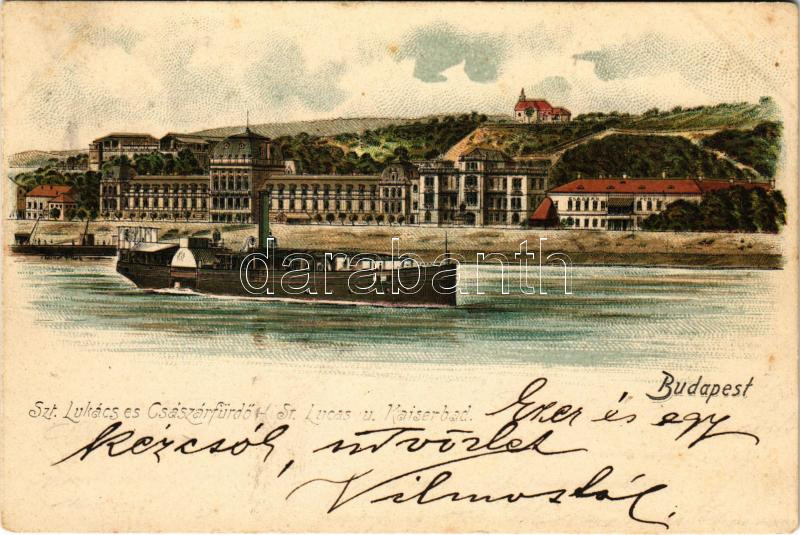 darabanth
Budapest
Szt. Lukács es Császárfürdő / St. Lucas u. Kaiserbad.
Ezer és egy
kézcsók, üdvözlet
Vilmostól.